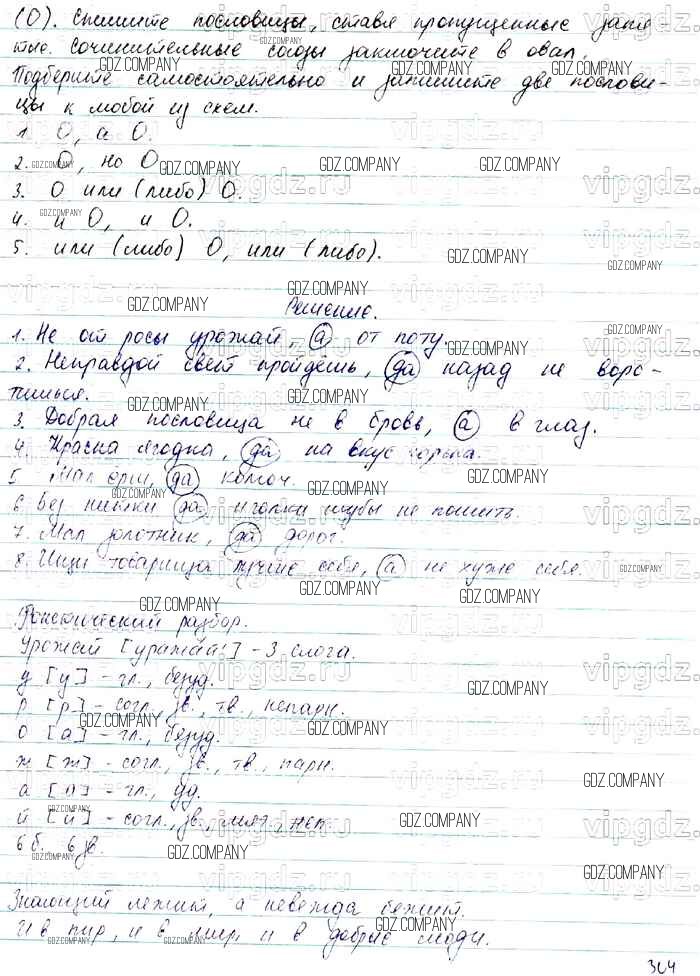 (О). Спишите пословицы, ставя пропущенные запя-
тые. Сочинительные союзы заключите в овал.
Подберите самостоятельно и запишите две послови-
цы к любой из схем.
1. О, а О.
2. О, но О
3. О или (либо) О.
4. и О, и О.
5. или (либо) О, или (либо).
Решение.
1. Не от росы урожай, а от поту.
2. Неправдой свет пройдёшь, да назад не воро-
тишься.
3. Добрая пословица не в бровь, а в глаз.
4. Красна ягодка, да на вкус горька.
5. Мал ёрш, да колюч.
6. Без нитки да иголки шубы не пошить.
7. Мал золотник, да дорог.
8. Ищи товарища лучше себя, а не хуже себя.
Фонетический разбор.
Урожай [уражай'] - 3 слога.
у [у] - гл., безуд.
р [р] - согл., зв., тв., непарн.
о [а] - гл., безуд.
ж [ж] - согл., зв., тв., парн.
а [а] - гл., уд.
й [й] - согл., зв., мягк., неп.
6 б. 6 зв.
лежит, а невежда бежит.
И в пир, и в мир, и в добрые люди.
304
GDZ.COMPANY
vipgdz.ru